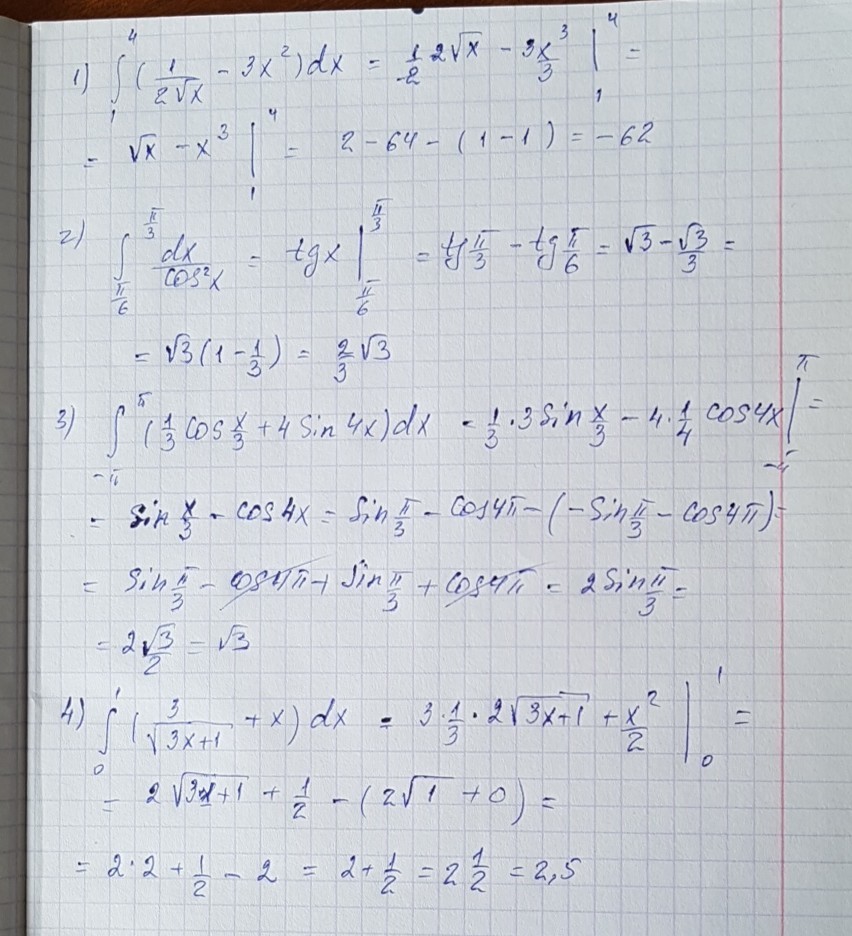 1) ∫₁⁴ (1/(2√x) - 3x²)dx = 1/2 2√x - 3x³/3 |₁⁴ =
= √x - x³ |₁⁴ = 2 - 64 - (1 - 1) = -62
2) ∫_{π/6}^{π/3} dx/cos²x = tgx |_{π/6}^{π/3} = tg π/3 - tg π/6 = √3 - √3/3 =
= √3(1 - 1/3) = 2/3 √3
3) ∫_{-π}^{π} (1/3 cos x/3 + 4 sin 4x)dx = 1/3 · 3 sin x/3 - 4 · 1/4 cos 4x |_{-π}^{π} =
= sin x/3 - cos 4x = sin π/3 - cos 4π - (-sin π/3 - cos 4π) =
= sin π/3 - cos 4π + sin π/3 + cos 4π = 2 sin π/3 =
= 2 √3/2 = √3
4) ∫₀¹ (3/√(3x+1) + x) dx = 3 · 1/3 · 2√(3x+1) + x²/2 |₀¹ =
= 2√(3·1+1) + 1/2 - (2√1 + 0) =
= 2·2 + 1/2 - 2 = 2 + 1/2 = 2 1/2 = 2,5